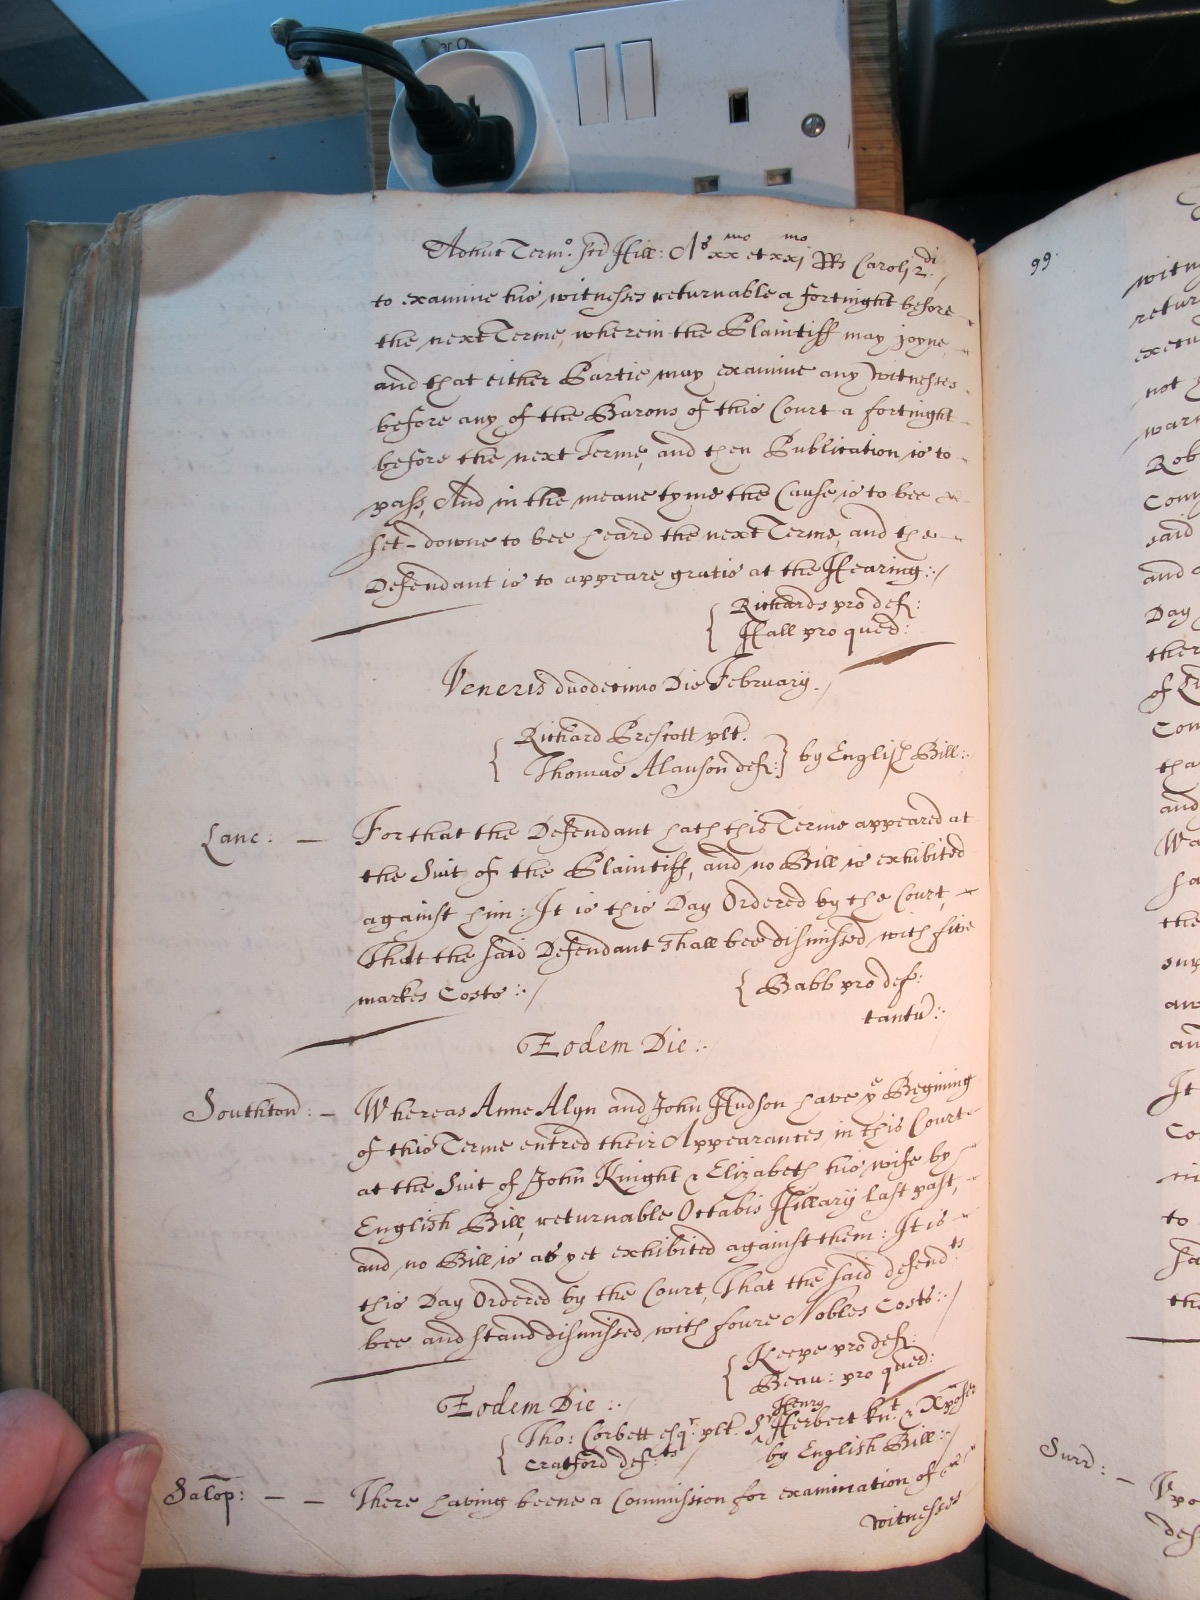 Adhuc Term.o Sci Hill: A.s xx mo et xxj mo Rs Carolj 2.di
to examine his witnesses returnable a fortinght before
the next Terme, wherein the Plaintiff may joyne,
and that either Partie may examine any witnesses
before any of the Barons of this Court a fortinght
before the next Terme, and then Publication is to
pass, And in the meane tyme the Cause is to bee
set-downe to bee heard the next Terme, and the
Defendant is to appeare gratis at the Hearing:./
Richards pro def:
Hall pro quer:
Veneris duodecimo Die February./
Richard Prescott plt.
Thomas Alanson def: by English Bill:.
Lanc: — For that the Defendant hath this Terme appeared at
the Suit of the Plaintiff, and no Bill is exhibited
against him: It is this Day Ordered by the Court,
That the said Defendant shall bee dismissed, with five
markes Costs:./
Babb pro def:
tantu:.
Eodem Die:.
Southton: — Whereas Anne Alyn and John Hudson have ye Begining
of this Terme entred their Appearances in this Court
at the Suit of John Knight & Elizabeth his wife by
English Bill, returnable Octabis Hillarij last past,
and no Bill is as yet exhibited against them: It is
this Day Ordered by the Court, That the said defend.ts
bee and stand dismissed, with foure Nobles Costs:./
Keepe pro def:
Beau: pro quer:
Eodem Die:.
Tho: Corbett esq.r plt. Sr Henry Herbert kn.t &
Cratford def.ts by English Bill:.
Salop: — — There having beene a Commission for examination of
witnesses
99.
witn
retur
not
warr
Rob
Com
said
and
Day
ther
of
Com
tha
and
Wa
the
It
Co
to
the
Surr: —